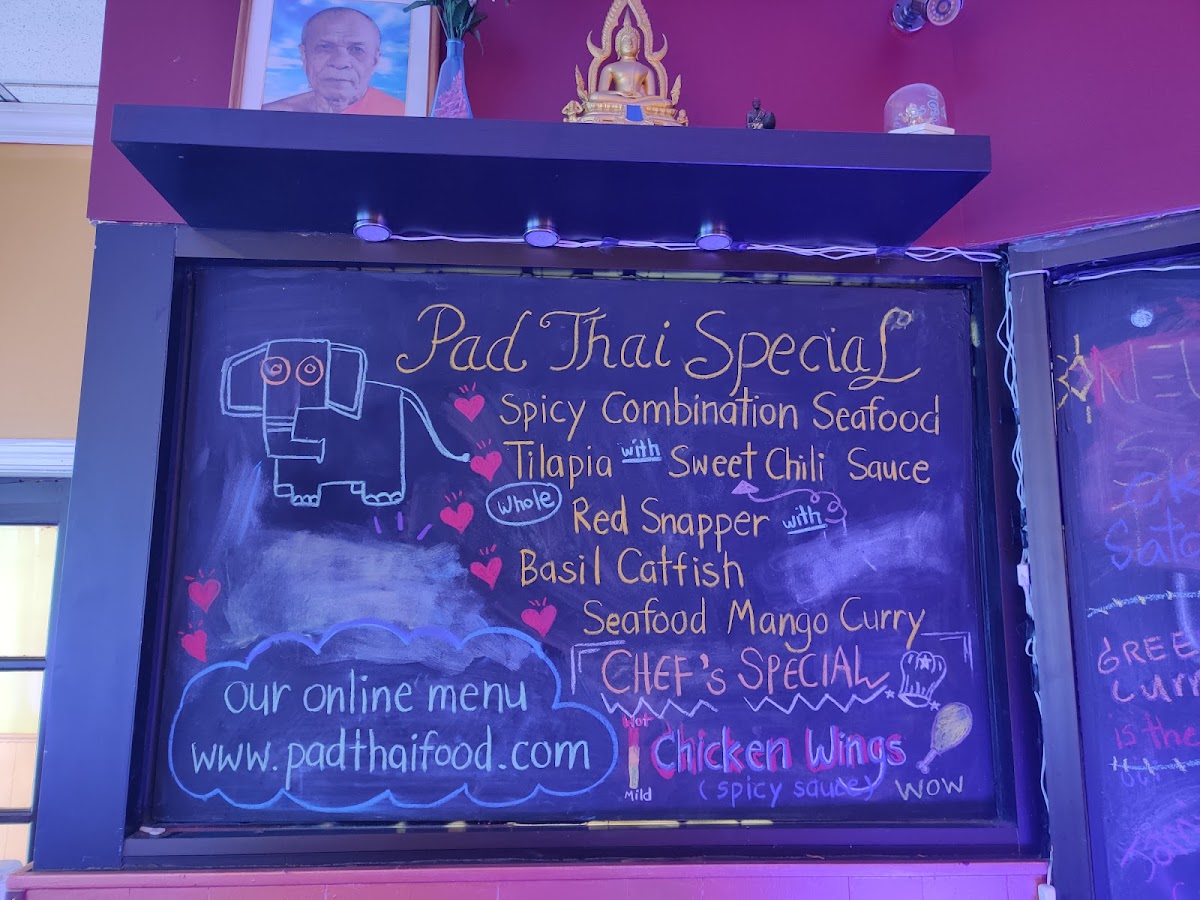 Pad Thai Special
Spicy Combination Seafood
Tilapia with Sweet Chili Sauce
Whole Red Snapper with
Basil Catfish
Seafood Mango Curry
CHEF's SPECIAL
Hot
Chicken Wings
Mild
(spicy sauce) WOW
our online menu
www.padthaifood.com
GREE
Curr
is the